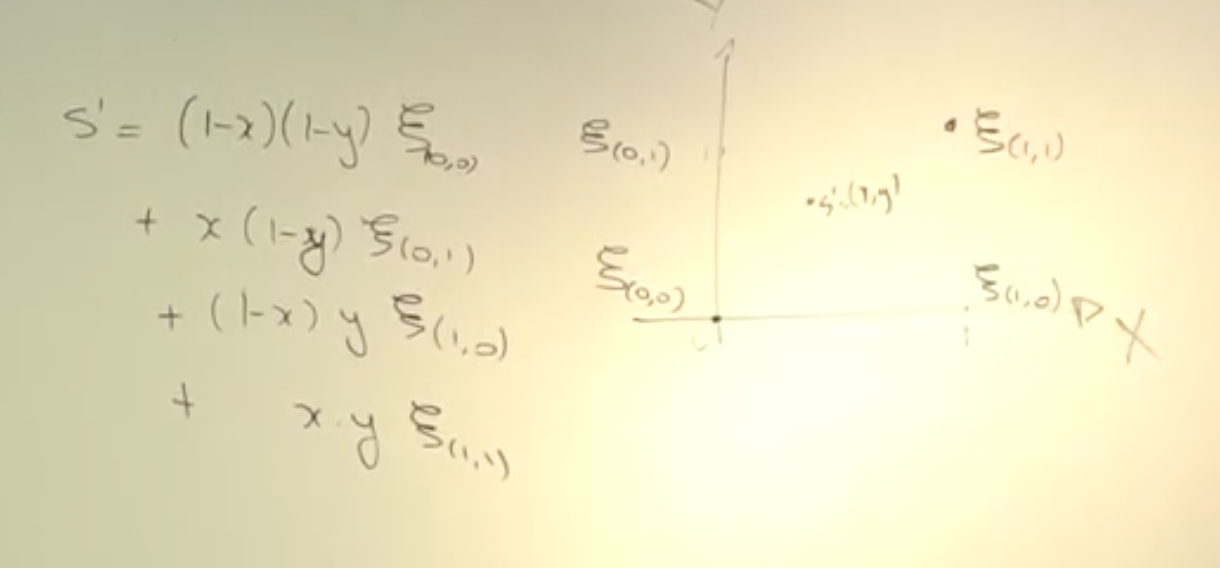 S' = (1-x)(1-y) ξ(0,0)
+ x (1-y) ξ(0,1)
+ (1-x) y ξ(1,0)
+ x.y ξ(1,1)
ξ(0,1)
ξ(1,1)
ξ(0,0)
ξ(1,0)
X